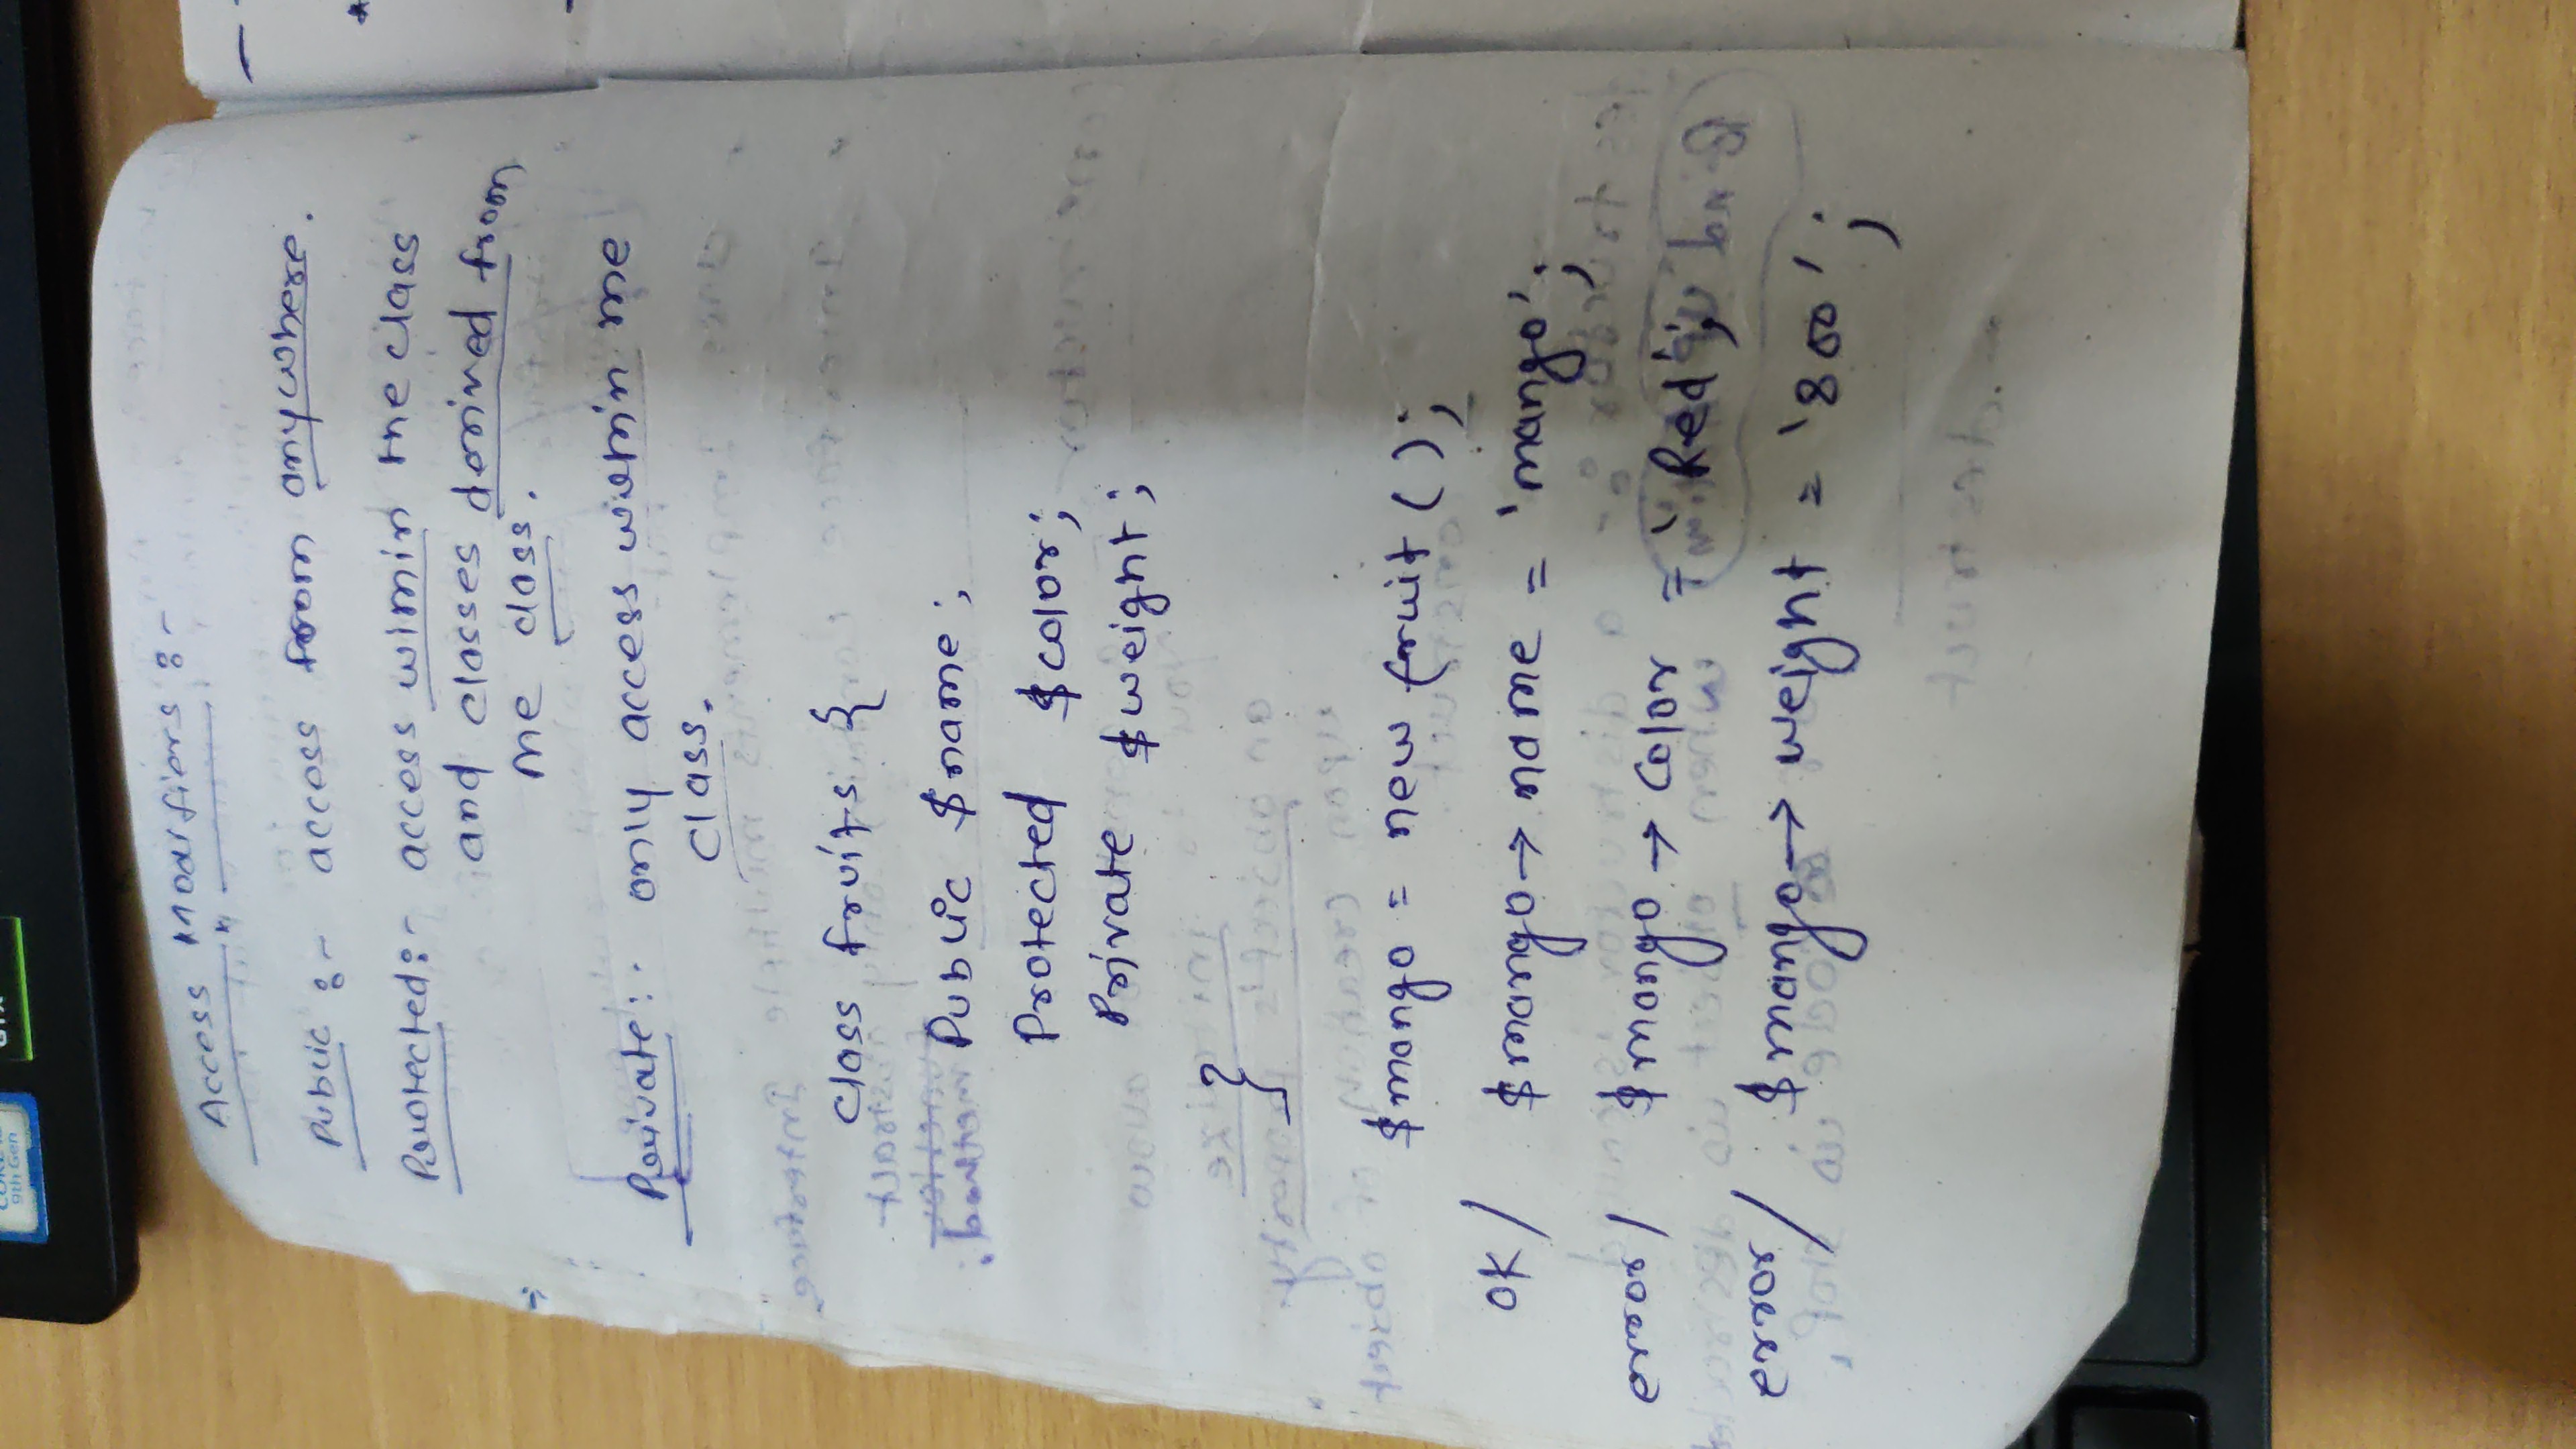 9th Gen
Access Modifiers :-
Public :- access from anywhere.
Protected :- access within the class
and classes derived from
the class.
Private :- only access within the
class.
class fruits {
Public $name ;
Protected $color;
Private $weight;
}
$mango = new fruit ();
ok/ $mango → name = 'mango';
error/ $mango → color = 'Red';
error/ $mango → weight = '800';